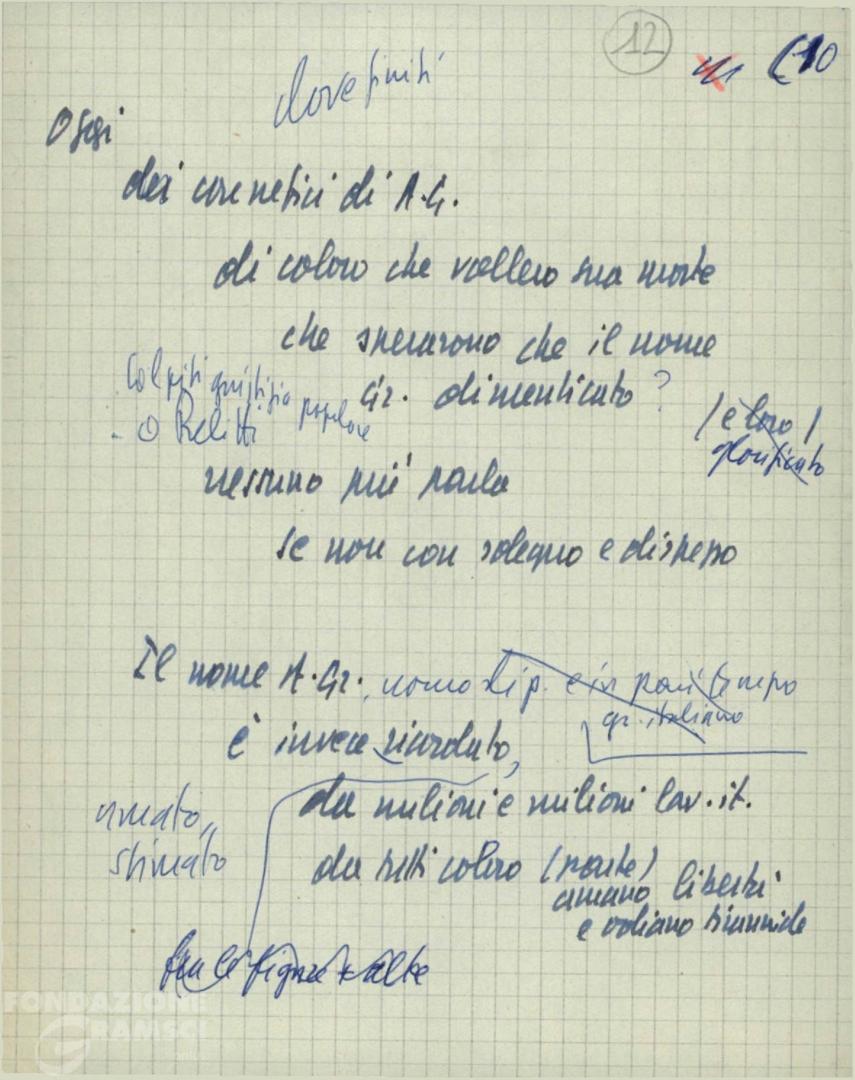 12
(10
dove finiti
Oggi
dei carnefici di A.G.
di coloro che vollero sua morte
che sperarono che il nome
Gr. dimenticato?
Colpiti giustizia popolare
o Relitti
/ è loro /
glorificato
nessuno più parla
se non con sdegno e disprezzo
Il nome A.Gr., uomo di p. e in pari tempo
gr. italiano
è invece ricordato,
da milioni e milioni lav. it.
amato,
stimato
da tutti coloro (parte)
amano libertà
e odiano tirannide
fra le figure + alte
FONDAZIONE
GRAMSCI